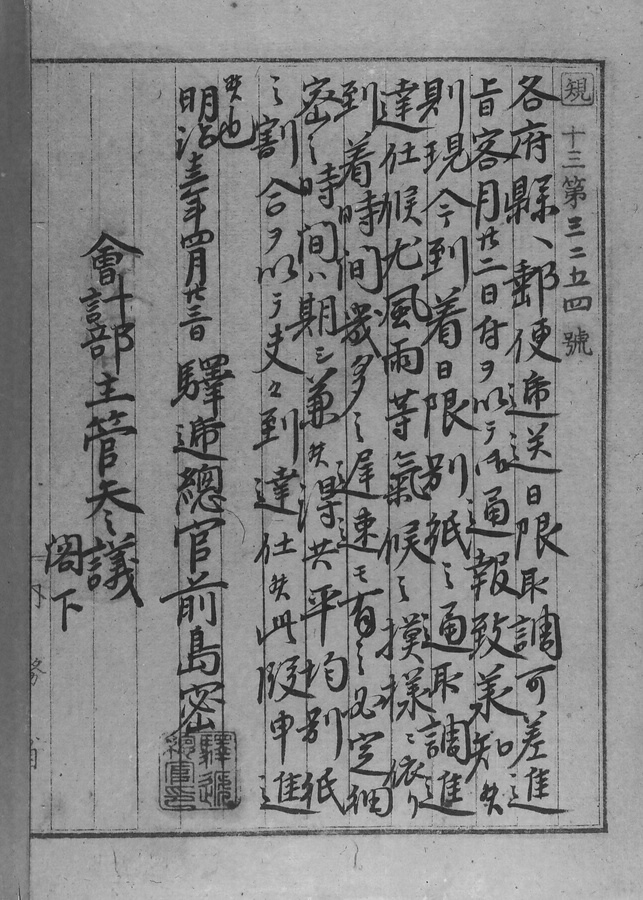 規 十三第三二五四號
各府縣ヘ郵便逓送日限取調可差進
旨客月廿二日付ヲ以テ御通報致承知候
則現今到着日限別紙之通取調進
達仕候尤風雨等氣候之摸様ニ依リ
到着時間幾多之遅速モ有之必定細
密之時間ハ期シ兼候得共平均別紙
之割合ヲ以テ夫々到達仕候此段申進
候也
明治十三年四月廿三日 驛逓總官前島密
驛逓總官印
會計部主管参議
閣下